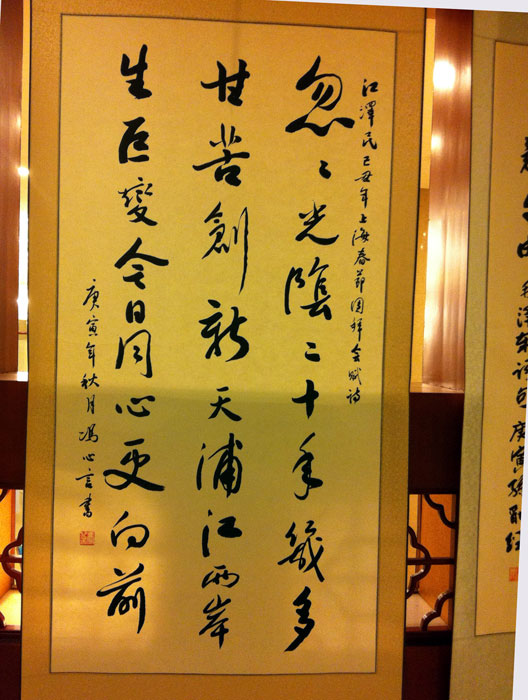 江澤民己丑年上海春節團拜会賦詩
忽〻光陰二十年幾多
甘苦創新天浦江兩岸
生巨變今日同心更向前
庚寅年秋月馮心言書